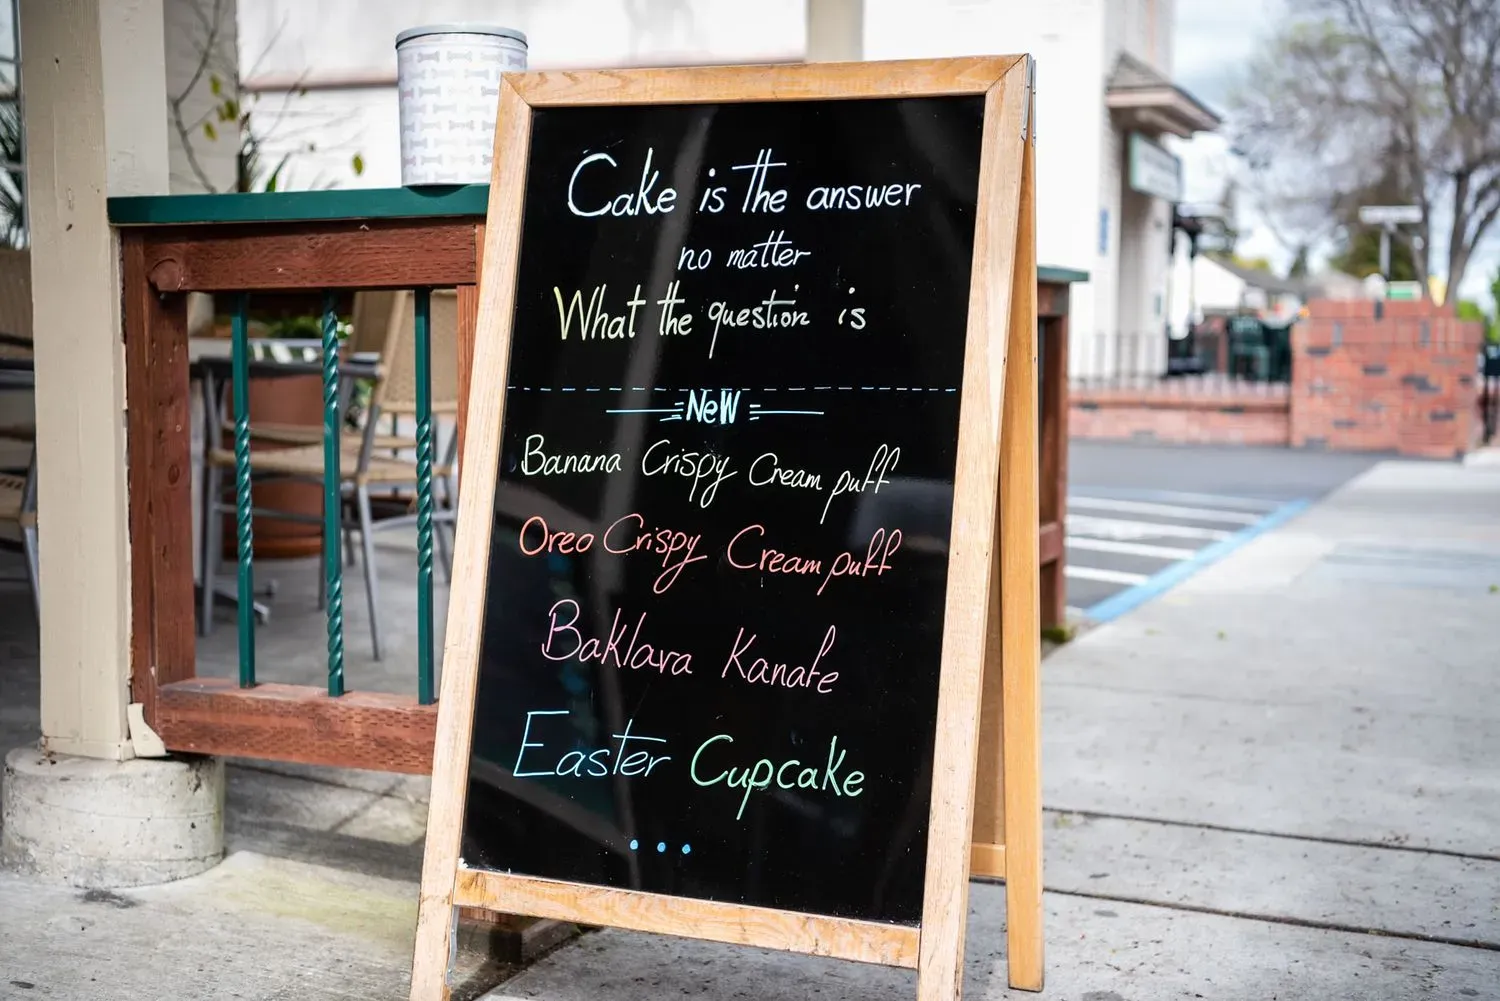 Cake is the answer
no matter
What the question is
NeW
Banana Crispy Cream puff
Oreo Crispy Cream puff
Baklava Kanafe
Easter Cupcake
...